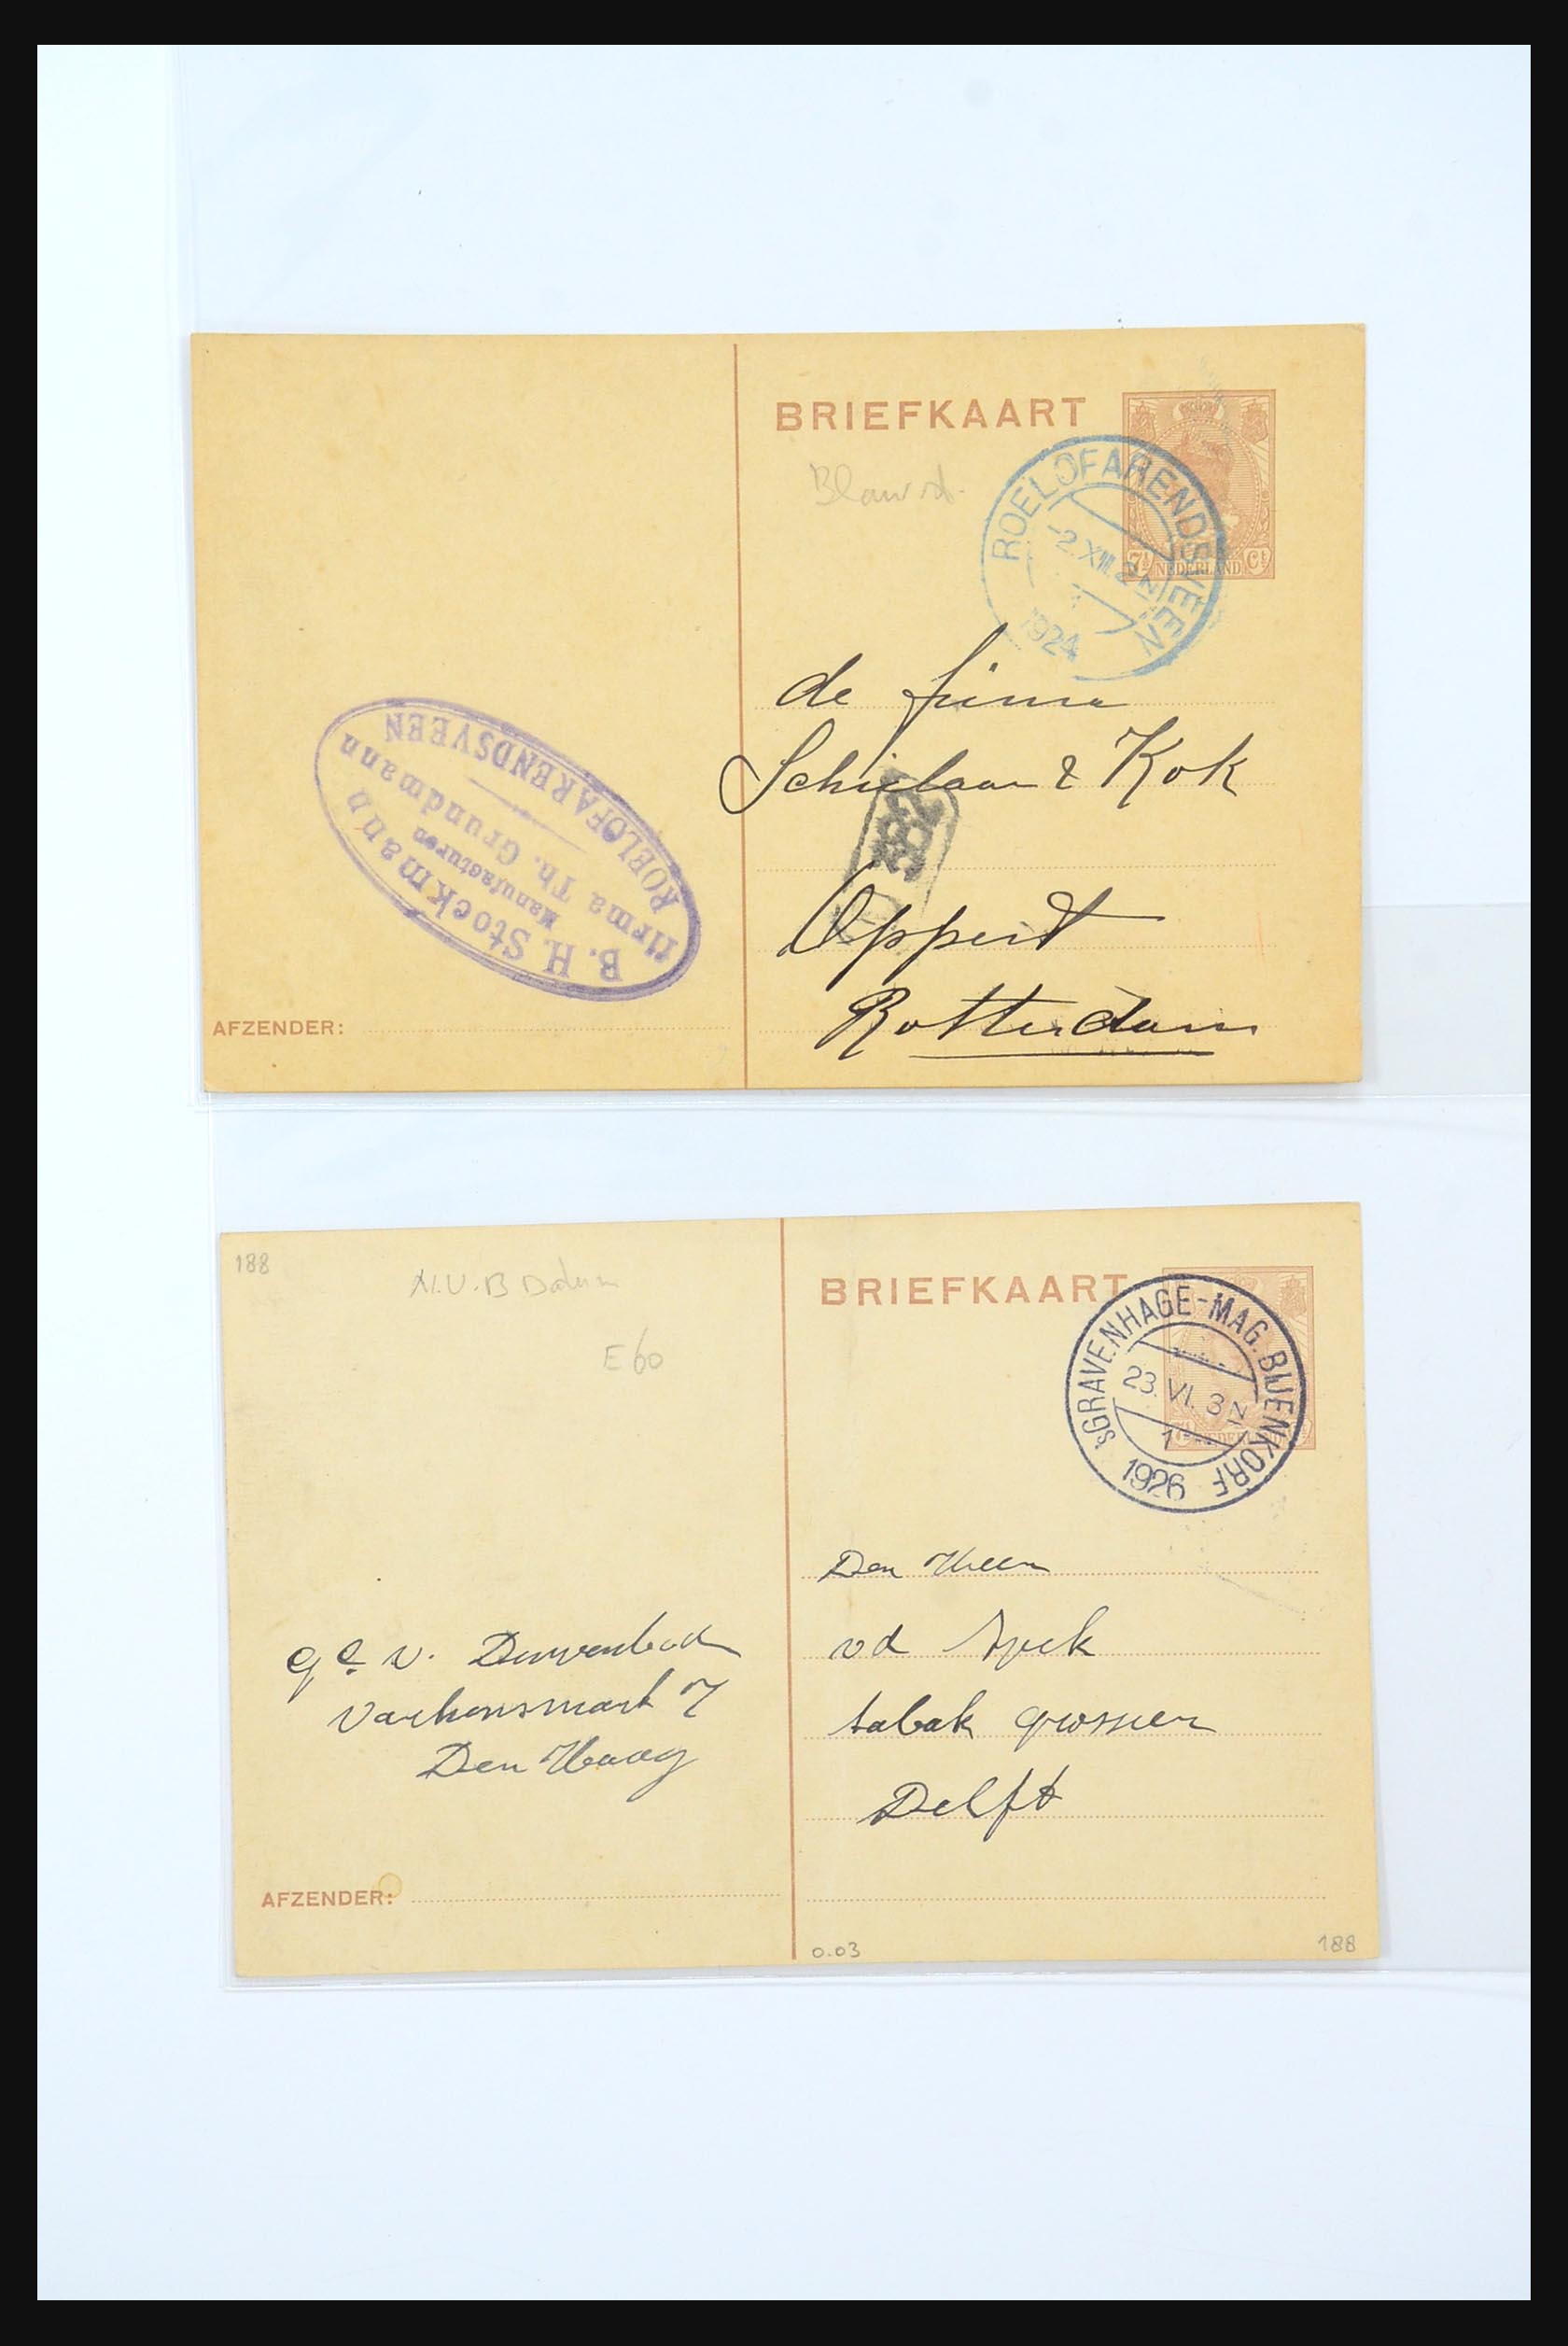 BRIEFKAART
ROELOFARENDSVEEN
-2.XII.
1924
7½ NEDERLAND Ct
de firma
Schielaar & Kok
Oppert
Rotterdam
B. H. Stockmann
Manufacturen
firma Th. Grundmann
ROELOFARENDSVEEN
AFZENDER:
188
N.V.B Datum
E60
BRIEFKAART
'sGRAVENHAGE-MAG. BIJENKORF
23.VI. 3N
1
1926
Den Heer
vd Spek
tabak grossier
Delft
v.
Varkensmarkt 7
Den Haag
AFZENDER:
0.03
188